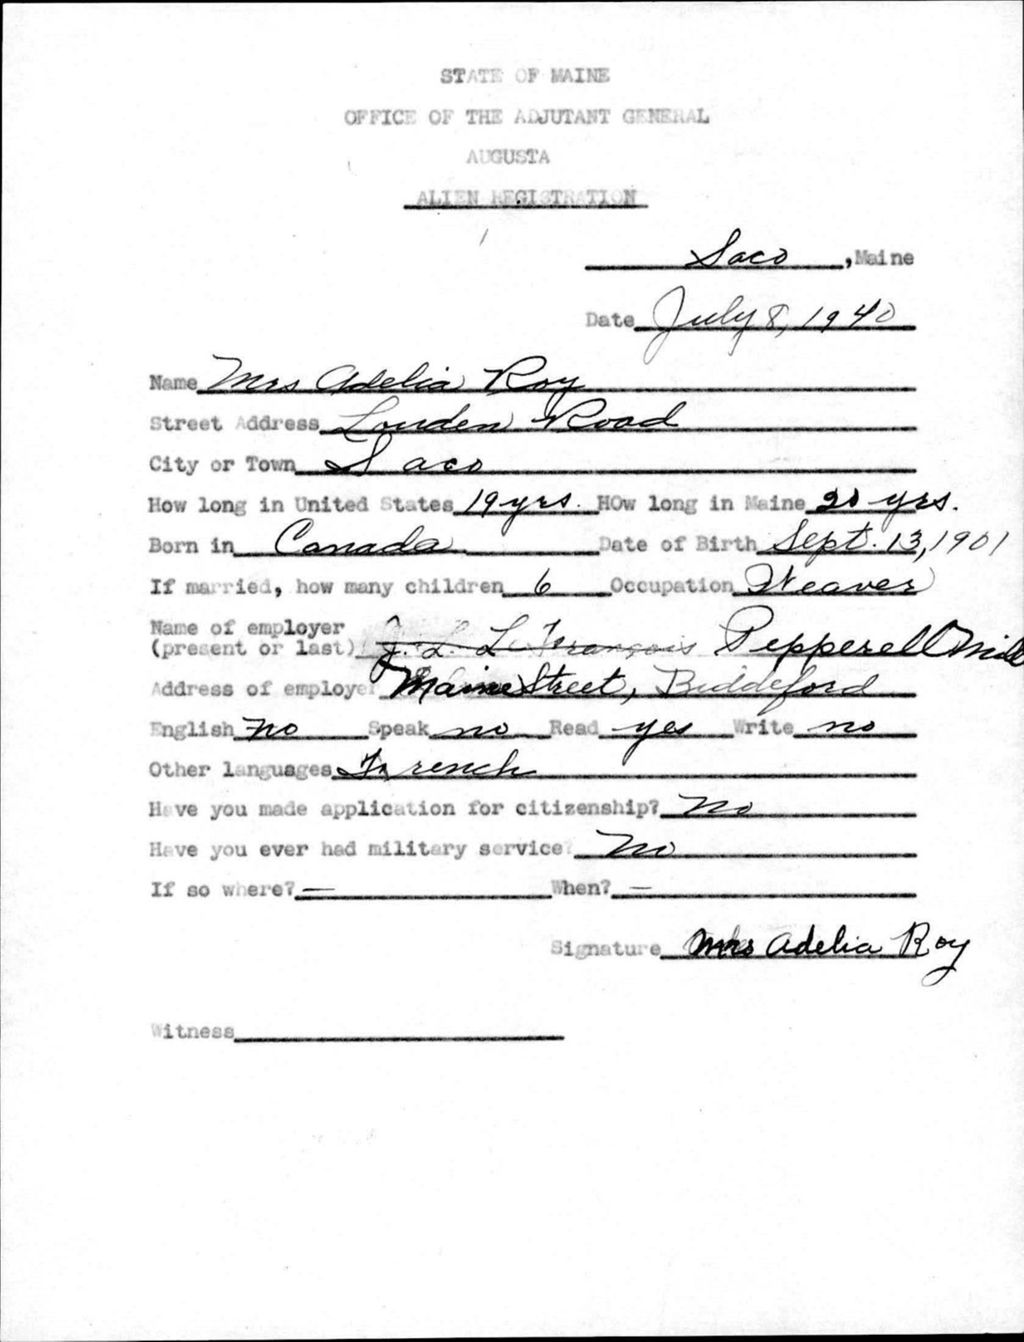 STATE OF MAINE
OFFICE OF THE ADJUTANT GENERAL
AUGUSTA
ALIEN REGISTRATION
Saco, Maine
Date July 8, 1940
Name Mrs Adelia Roy
Street Address Louden Road
City or Town Saco
How long in United States 19 yrs. HOw long in Maine 20 yrs.
Born in Canada Date of Birth Sept. 13, 1901
If married, how many children 6 Occupation Weaver
Name of employer
(present or last) J. L. LeFrançois Pepperell Mill
Address of employer Maine Street, Biddeford
English No Speak no Read yes Write no
Other languages French
Have you made application for citizenship? No
Have you ever had military service? No
If so where? — When? —
Signature Mrs Adelia Roy
Witness